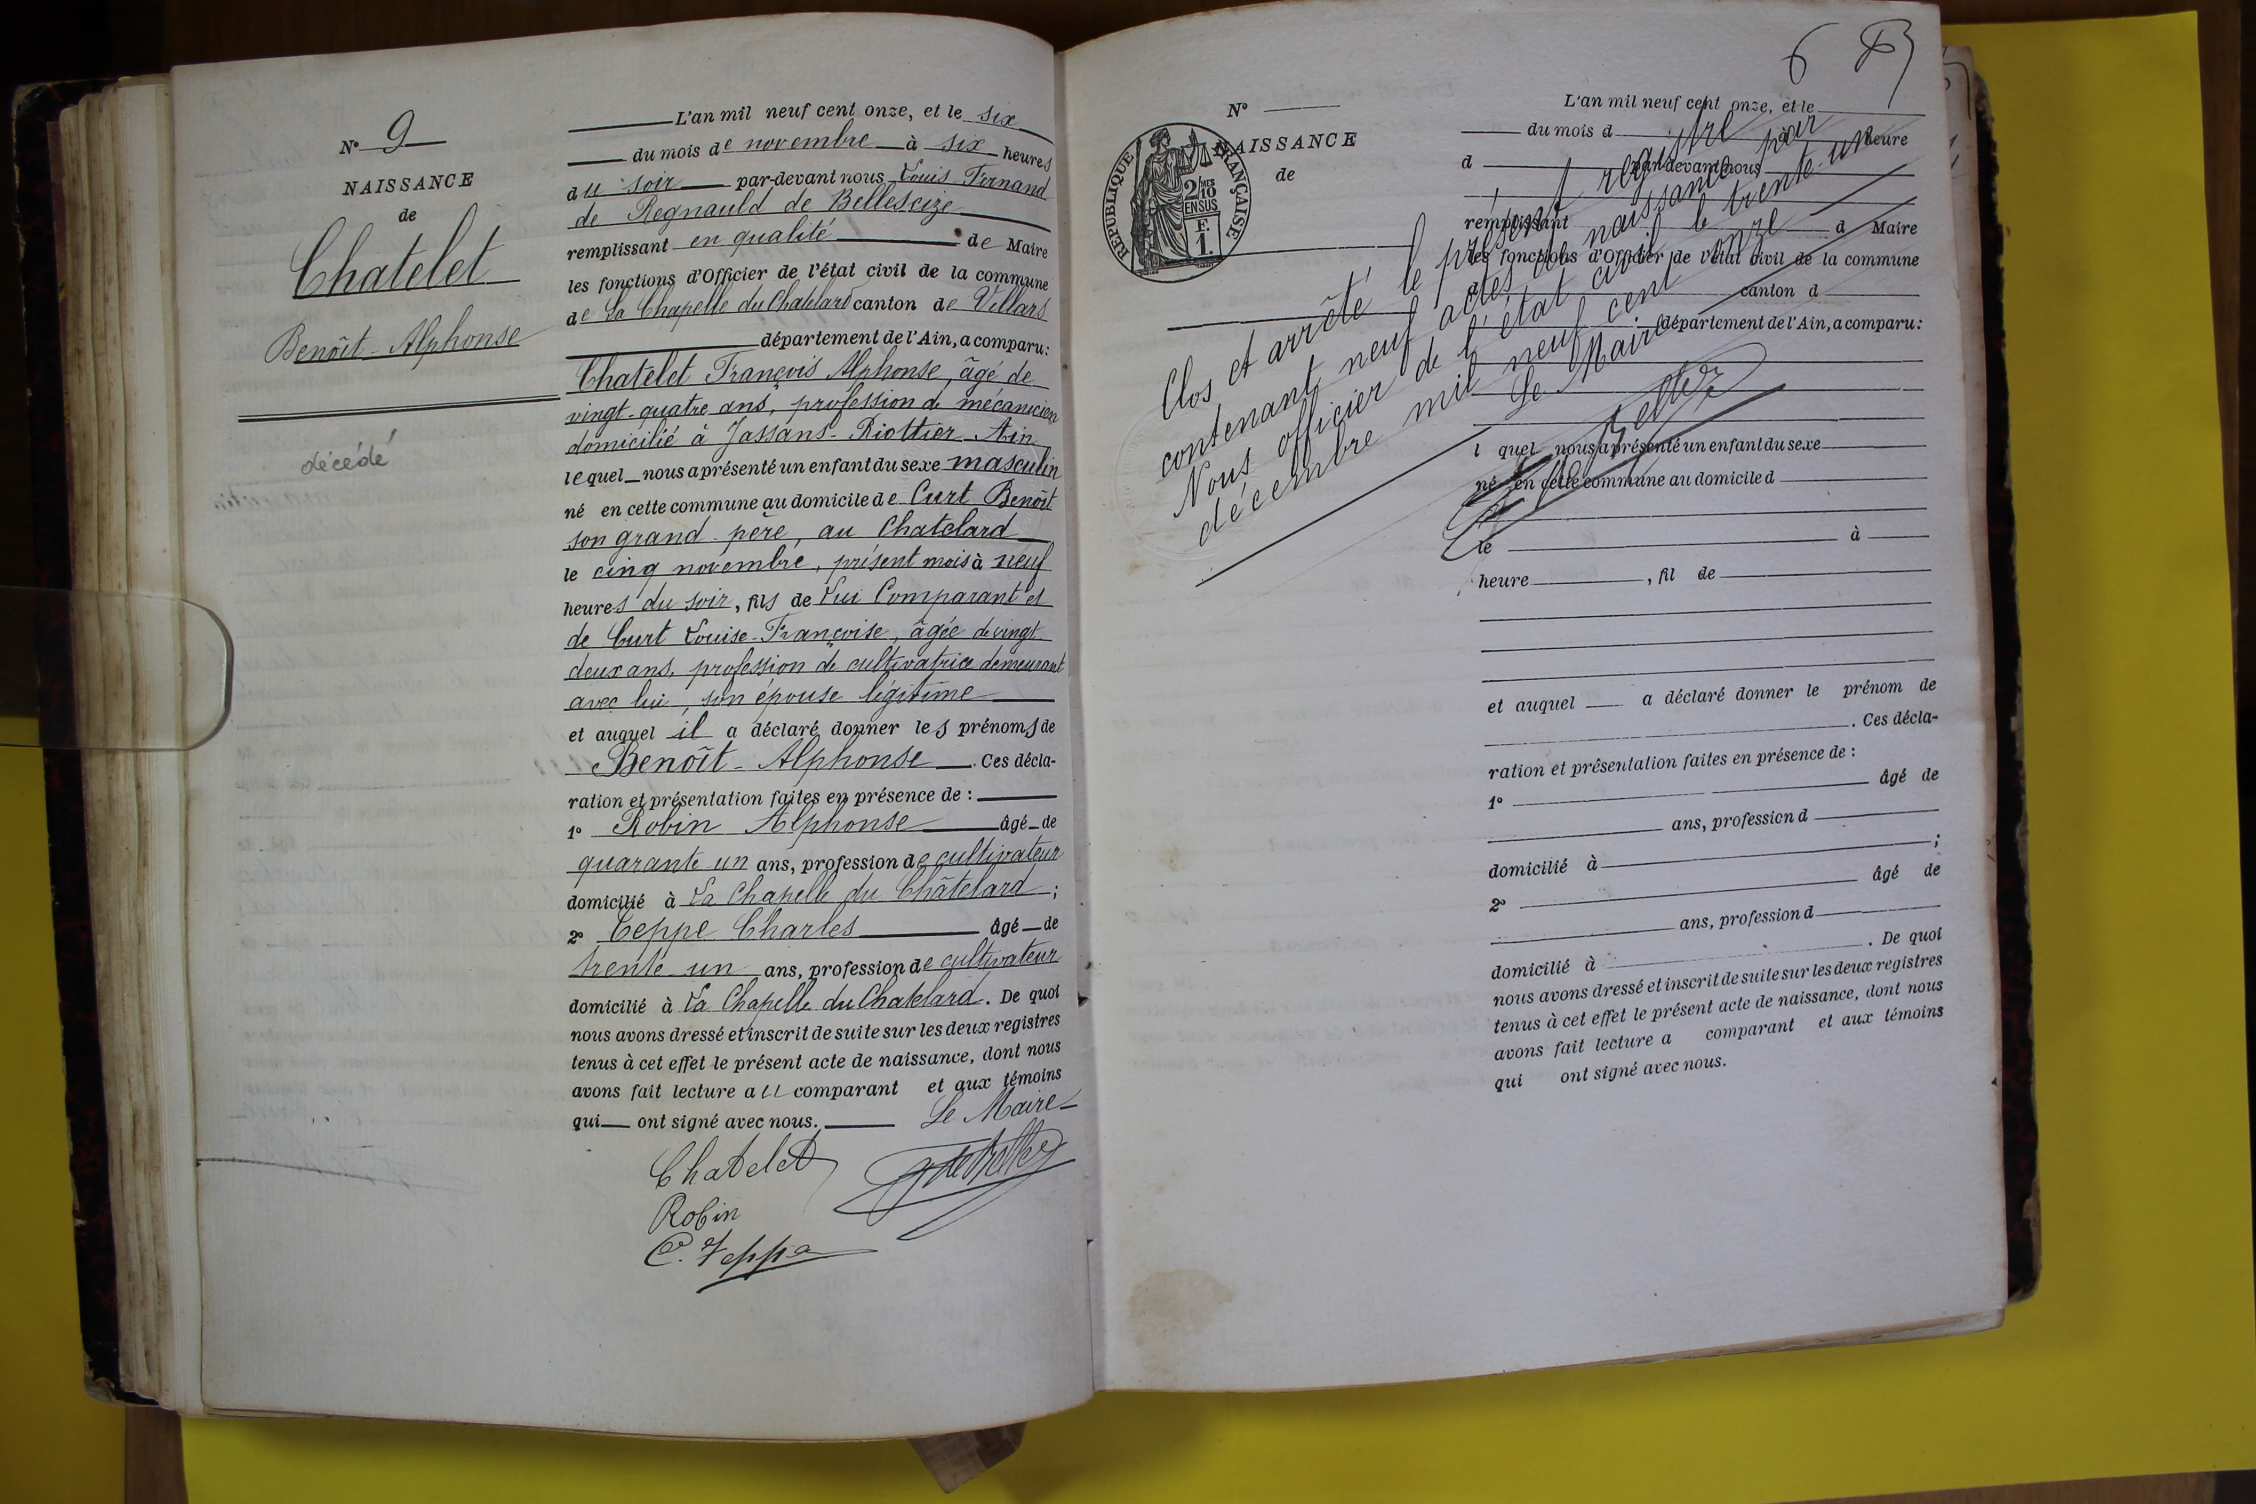 N° 9
NAISSANCE
de
Chatelet
Benoît - Alphonse
décédé
L'an mil neuf cent onze, et le six
du mois de novembre à six heures
du soir par-devant nous Louis Fernand
de Regnauld de Bellescize
remplissant en qualité de Maire
les fonctions d'Officier de l'état civil de la commune
de La Chapelle du Chatelard canton de Villars
département de l'Ain, a comparu:
Chatelet François Alphonse, âgé de
vingt-quatre ans, profession de mécanicien
domicilié à Jassans-Riottier - Ain
lequel nous a présenté un enfant du sexe masculin
né en cette commune au domicile de Curt Benoît
son grand-père, au Chatelard
le cinq novembre, présent mois à neuf
heures du soir, fils de Lui Comparant et
de Curt Louise-Françoise, âgée de vingt
deux ans, profession de cultivatrice demeurant
avec lui, son épouse légitime
et auquel il a déclaré donner les prénoms de
Benoît - Alphonse. Ces décla-
ration et présentation faites en présence de :
1° Robin Alphonse âgé de
quarante un ans, profession de cultivateur
domicilié à La Chapelle du Châtelard ;
2° Teppe Charles âgé de
trente un ans, profession de cultivateur
domicilié à La Chapelle du Chatelard. De quoi
nous avons dressé et inscrit de suite sur les deux registres
tenus à cet effet le présent acte de naissance, dont nous
avons fait lecture au comparant et aux témoins
qui ont signé avec nous. Le Maire
Chatelet
Robin
C. Teppe
6
N°
NAISSANCE
de
RÉPUBLIQUE FRANÇAISE
2/10 MES
EN SUS
F.
1.
Clos et arrêté le présent registre
contenant neuf actes de naissance par
Nous officier de l'état civil le trente-un
décembre mil neuf cent onze
Le Maire
L'an mil neuf cent onze, et le
du mois d à heure
d par-devant nous
remplissant d Maire
les fonctions d'Officier de l'état civil de la commune
d canton d
département de l'Ain, a comparu:
l quel nous a présenté un enfant du sexe
né en cette commune au domicile d
le à
heure , fil de
et auquel a déclaré donner le prénom de
. Ces décla-
ration et présentation faites en présence de :
1° âgé de
ans, profession d
domicilié à ;
2° âgé de
ans, profession d
domicilié à . De quoi
nous avons dressé et inscrit de suite sur les deux registres
tenus à cet effet le présent acte de naissance, dont nous
avons fait lecture a comparant et aux témoins
qui ont signé avec nous.